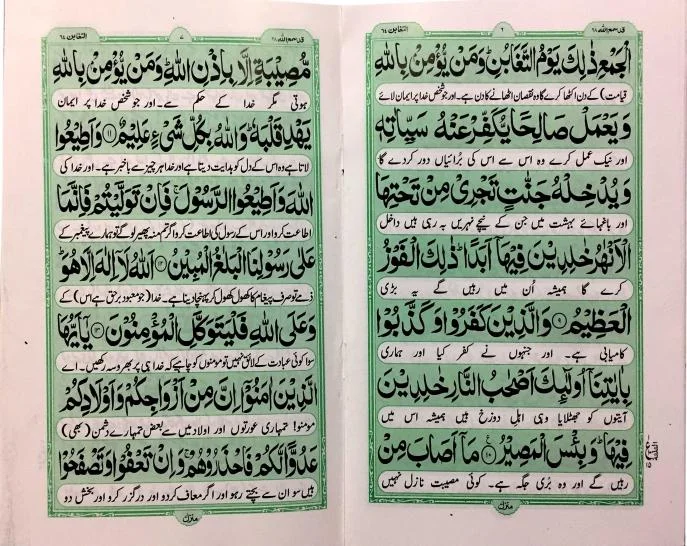 قد سمع اللہ ٢٨
٦
التغابن ٦٤
الْجَمْعِ ذٰلِكَ يَوْمُ التَّغَابُنِ ؕ وَمَنْ يُّؤْمِنْۢ بِاللّٰهِ
قیامت) کے دن اکٹھا کرے گا وہ نقصان اٹھانے کا دن ہے۔ اور جو شخص خدا پر ایمان لائے
وَيَعْمَلْ صَالِحًا يُّكَفِّرْ عَنْهُ سَيِّاٰتِهٖ
اور نیک عمل کرے وہ اس سے اس کی برائیاں دور کردے گا
وَيُدْخِلْهُ جَنّٰتٍ تَجْرِىْ مِنْ تَحْتِهَا
اور باغہائے بہشت میں جن کے نیچے نہریں بہ رہی ہیں داخل
الْاَنْهٰرُ خٰلِدِيْنَ فِيْهَاۤ اَبَدًا ؕ ذٰلِكَ الْفَوْزُ
کرے گا ہمیشہ اُن میں رہیں گے یہ بڑی
الْعَظِيْمُ ۹ وَالَّذِيْنَ كَفَرُوْا وَكَذَّبُوْا
کامیابی ہے۔ اور جنہوں نے کفر کیا اور ہماری
بِاٰيٰتِنَاۤ اُولٰٓئِكَ اَصْحٰبُ النَّارِ خٰلِدِيْنَ
آیتوں کو جھٹلایا وہی اہل دوزخ ہیں ہمیشہ اس میں
فِيْهَا ؕ وَبِئْسَ الْمَصِيْرُ ۱۰ مَاۤ اَصَابَ مِنْ
رہیں گے اور وہ بُری جگہ ہے۔ کوئی مصیبت نازل نہیں
منزل
قد سمع اللہ ٢٨
٧
التغابن ٦٤
مُّصِيْبَةٍ اِلَّا بِاِذْنِ اللّٰهِ ؕ وَمَنْ يُّؤْمِنْۢ بِاللّٰهِ
ہوتی مگر خدا کے حکم سے۔ اور جو شخص خدا پر ایمان
يَهْدِ قَلْبَهٗ ؕ وَاللّٰهُ بِكُلِّ شَىْءٍ عَلِيْمٌ ۱۱ وَاَطِيْعُوا
لاتا ہے وہ اس کے دل کو ہدایت دیتا ہے اور خدا ہر چیز سے باخبر ہے۔ اور خدا کی
اللّٰهَ وَاَطِيْعُوا الرَّسُوْلَ ۚ فَاِنْ تَوَلَّيْتُمْ فَاِنَّمَا
اطاعت کرو اور اس کے رسول کی اطاعت کرو اگر تم منہ پھیر لو گے تو ہمارے پیغمبر کے
عَلٰى رَسُوْلِنَا الْبَلٰغُ الْمُبِيْنُ ۱۲ اَللّٰهُ لَاۤ اِلٰهَ اِلَّا هُوَ ؕ
ذمے تو صرف پیغام کا کھول کھول کر پہنچا دینا ہے۔ خدا (جو معبود برحق ہے اس) کے
وَعَلَى اللّٰهِ فَلْيَتَوَكَّلِ الْمُؤْمِنُوْنَ ۱۳ يٰۤاَيُّهَا
سوا کوئی عبادت کے لائق نہیں تو مومنوں کو چاہیے کہ خدا ہی پر بھروسہ رکھیں۔ اے
الَّذِيْنَ اٰمَنُوْۤا اِنَّ مِنْ اَزْوَاجِكُمْ وَاَوْلَادِكُمْ
مومنو! تمہاری عورتوں اور اولاد میں سے بعض تمہارے دشمن (بھی)
عَدُوًّا لَّكُمْ فَاحْذَرُوْهُمْ ۚ وَاِنْ تَعْفُوْا وَتَصْفَحُوْا
ہیں سو ان سے بچتے رہو اور اگر معاف کردو اور درگزر کرو اور بخش دو
منزل